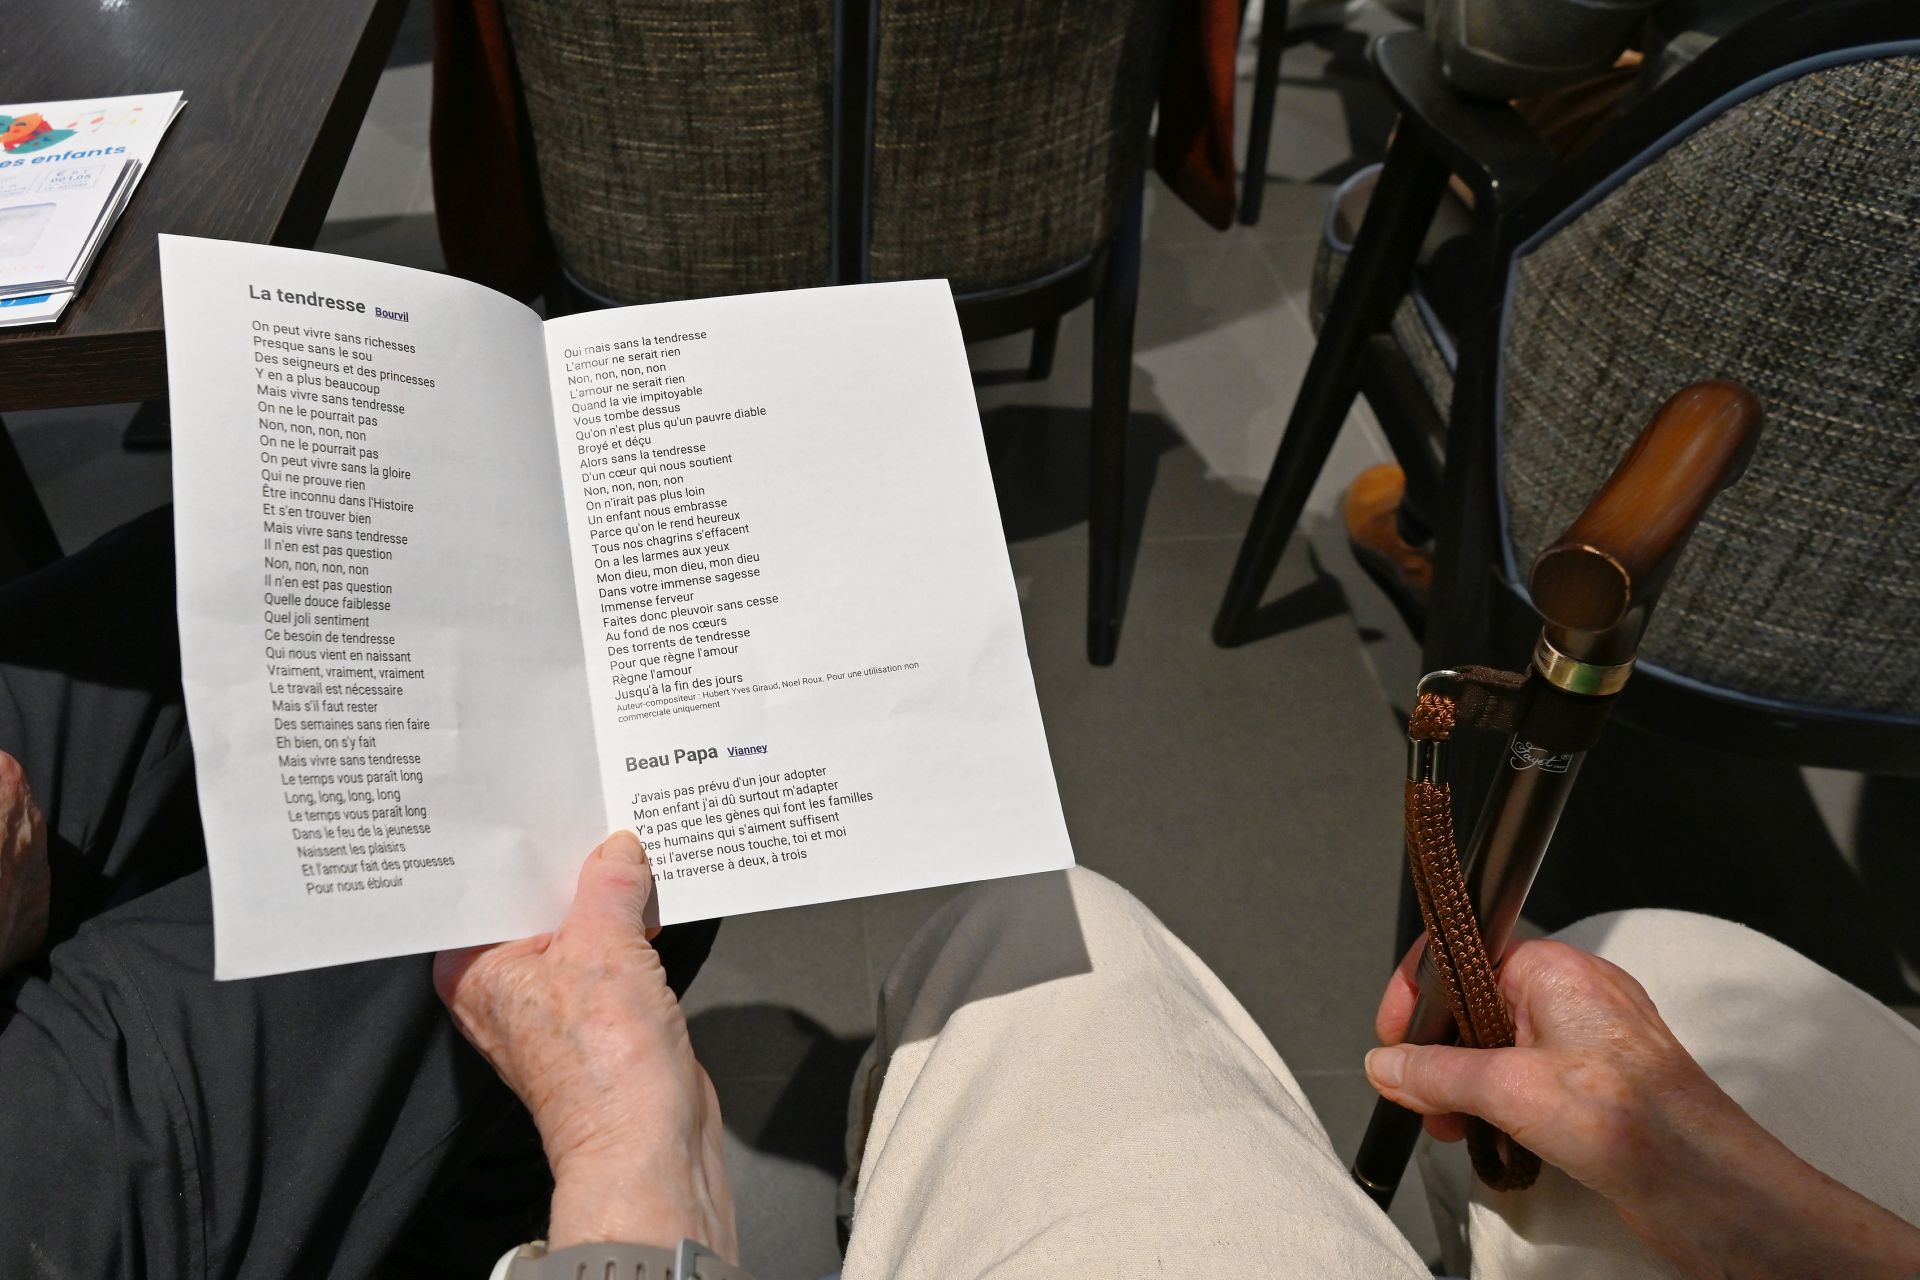 es enfants
La tendresse Bourvil
On peut vivre sans richesses
Presque sans le sou
Des seigneurs et des princesses
Y en a plus beaucoup
Mais vivre sans tendresse
On ne le pourrait pas
Non, non, non, non
On ne le pourrait pas
On peut vivre sans la gloire
Qui ne prouve rien
Être inconnu dans l'Histoire
Et s'en trouver bien
Mais vivre sans tendresse
Il n'en est pas question
Non, non, non, non
Il n'en est pas question
Quelle douce faiblesse
Quel joli sentiment
Ce besoin de tendresse
Qui nous vient en naissant
Vraiment, vraiment, vraiment
Le travail est nécessaire
Mais s'il faut rester
Des semaines sans rien faire
Eh bien, on s'y fait
Mais vivre sans tendresse
Le temps vous paraît long
Long, long, long, long
Le temps vous paraît long
Dans le feu de la jeunesse
Naissent les plaisirs
Et l'amour fait des prouesses
Pour nous éblouir
Oui mais sans la tendresse
L'amour ne serait rien
Non, non, non, non
L'amour ne serait rien
Quand la vie impitoyable
Vous tombe dessus
Qu'on n'est plus qu'un pauvre diable
Broyé et déçu
Alors sans la tendresse
D'un cœur qui nous soutient
Non, non, non, non
On n'irait pas plus loin
Un enfant nous embrasse
Parce qu'on le rend heureux
Tous nos chagrins s'effacent
On a les larmes aux yeux
Mon dieu, mon dieu, mon dieu
Dans votre immense sagesse
Immense ferveur
Faites donc pleuvoir sans cesse
Au fond de nos cœurs
Des torrents de tendresse
Pour que règne l'amour
Règne l'amour
Jusqu'à la fin des jours
Auteur-compositeur : Hubert Yves Giraud, Noel Roux. Pour une utilisation non
commerciale uniquement
Beau Papa Vianney
J'avais pas prévu d'un jour adopter
Mon enfant j'ai dû surtout m'adapter
Y'a pas que les gènes qui font les familles
Des humains qui s'aiment suffisent
t si l'averse nous touche, toi et moi
n la traverse à deux, à trois
Fayet